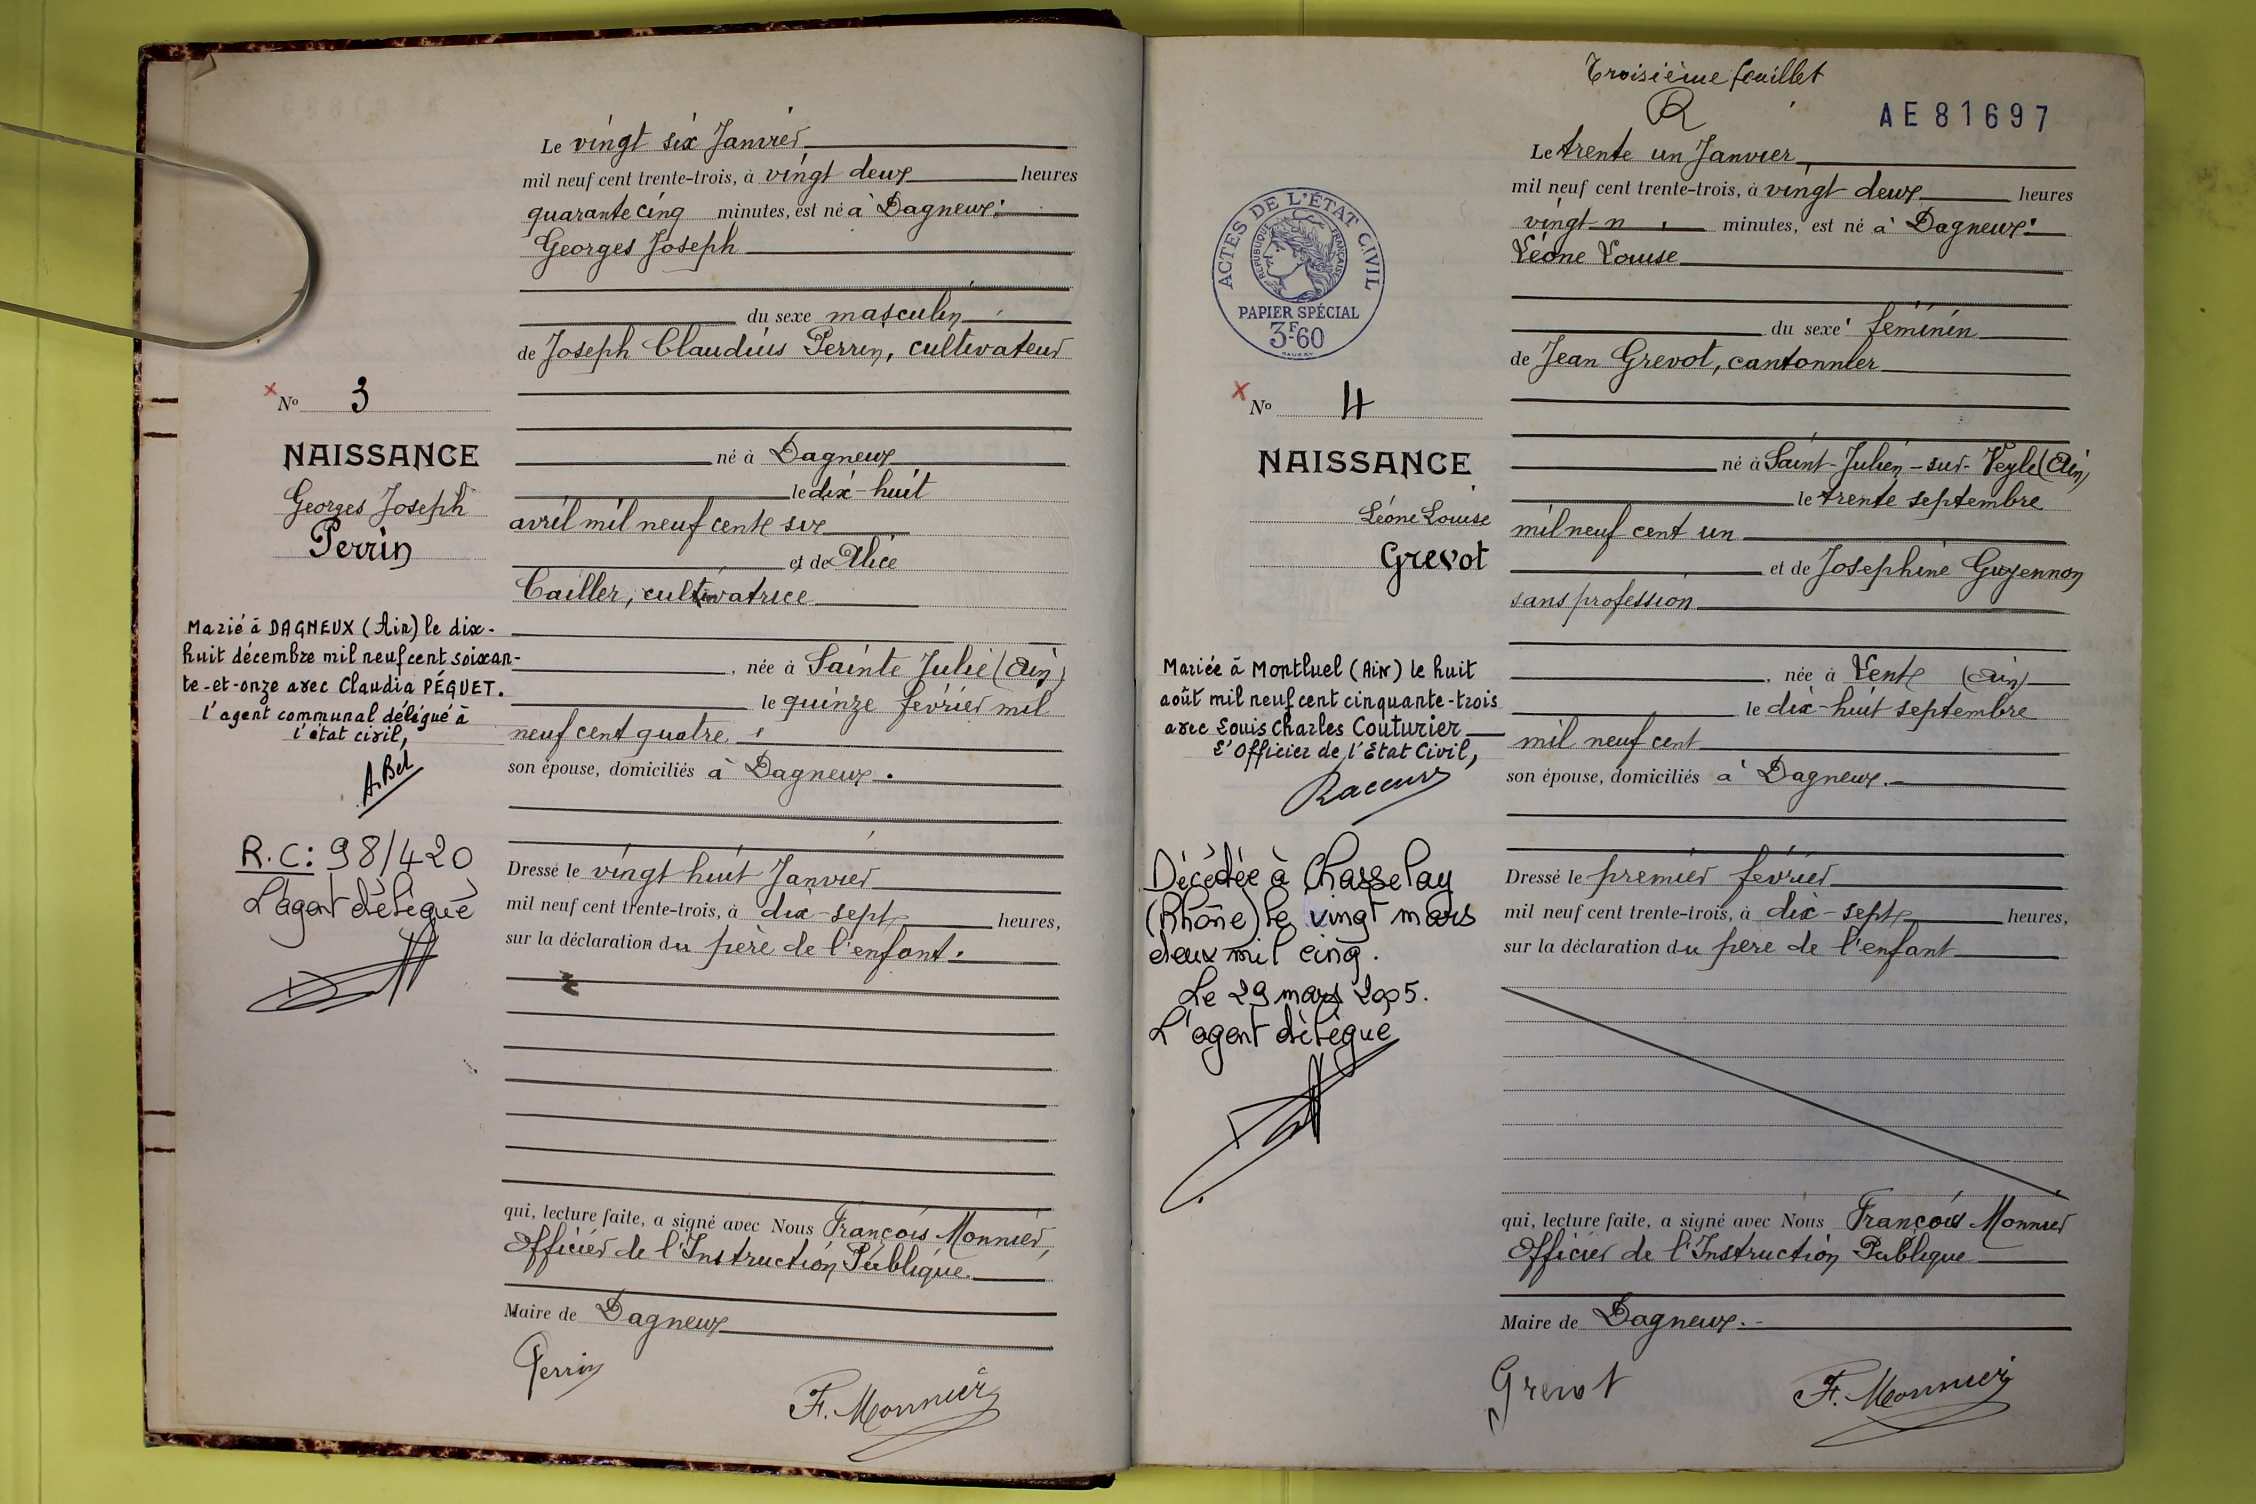 Le vingt six Janvier
mil neuf cent trente-trois, à vingt deux heures
quarante cinq minutes, est né à Dagneux:
Georges Joseph
du sexe masculin
de Joseph Claudius Perrin, cultivateur
N° 3
NAISSANCE
Georges Joseph
Perrin
né à Dagneux
le dix-huit
avril mil neuf cent six
et de Alice
Cailler, cultivatrice
Marié à DAGNEUX (Ain) le dix-
huit décembre mil neuf cent soixan-
te-et-onze avec Claudia PÉGUET.
l'agent communal délégué à
l'état civil,
A. Bel
née à Sainte Julie (Ain)
le quinze février mil
neuf cent quatre
son épouse, domiciliés à Dagneux.
R.C: 98/420
L'agent délégué
Dressé le vingt huit Janvier
mil neuf cent trente-trois, à dix-sept heures,
sur la déclaration du père de l'enfant.
qui, lecture faite, a signé avec Nous François Monnier,
Officier de l'Instruction Publique.
Maire de Dagneux
Perrin
F. Monnier
Troisième feuillet
AE81697
Le trente un Janvier
mil neuf cent trente-trois, à vingt deux heures
vingt minutes, est né à Dagneux:
Léone Louise
du sexe féminin
de Jean Grevot, cantonnier
ACTES DE L'ÉTAT CIVIL
REPUBLIQUE FRANÇAISE
PAPIER SPÉCIAL
3F60
N° 4
NAISSANCE
Léone Louise
Grevot
né à Saint-Julien-sur-Veyle (Ain)
le trente septembre
mil neuf cent un
et de Josephine Guyennon
sans profession
Mariée à Montluel (Ain) le huit
août mil neuf cent cinquante-trois
avec Louis Charles Couturier
L'Officier de l'Etat Civil,
née à (Ain)
le dix-huit septembre
mil neuf cent
son épouse, domiciliés à Dagneux.
Décédée à Chasselay
(Rhône) le vingt mars
deux mil cinq.
Le 29 mars 2005.
L'agent délégué
Dressé le premier février
mil neuf cent trente-trois, à dix-sept heures,
sur la déclaration du père de l'enfant
qui, lecture faite, a signé avec Nous François Monnier
Officier de l'Instruction Publique
Maire de Dagneux.
Grevot
F. Monnier